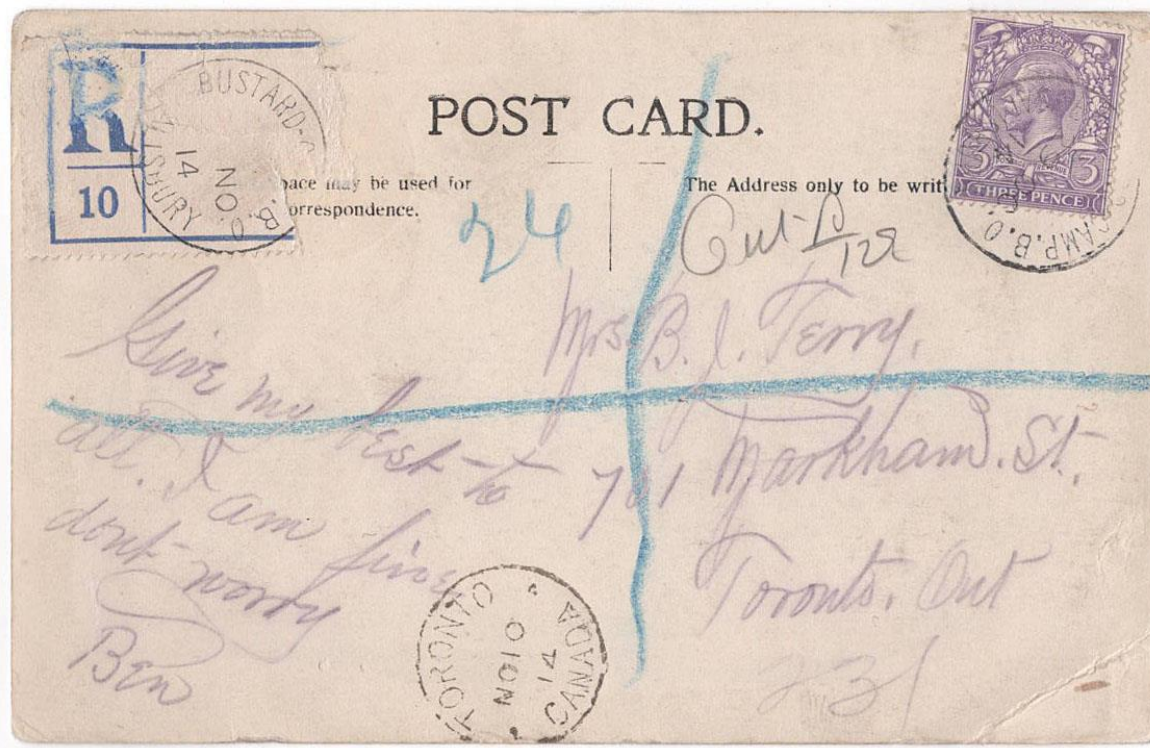 R
10
BUSTARD-C
B.O
SALISBURY
NO
14
POST CARD.
pace may be used for
orrespondence.
The Address only to be writ
THREE PENCE
3 3
REVENUE
CAMP. B.O
24
Give my best to
all. I am fine
dont worry
Ben
Mrs B. J. Terry,
781 Markham. St.
Toronto. Ont
231
TORONTO
CANADA
NO 10
14